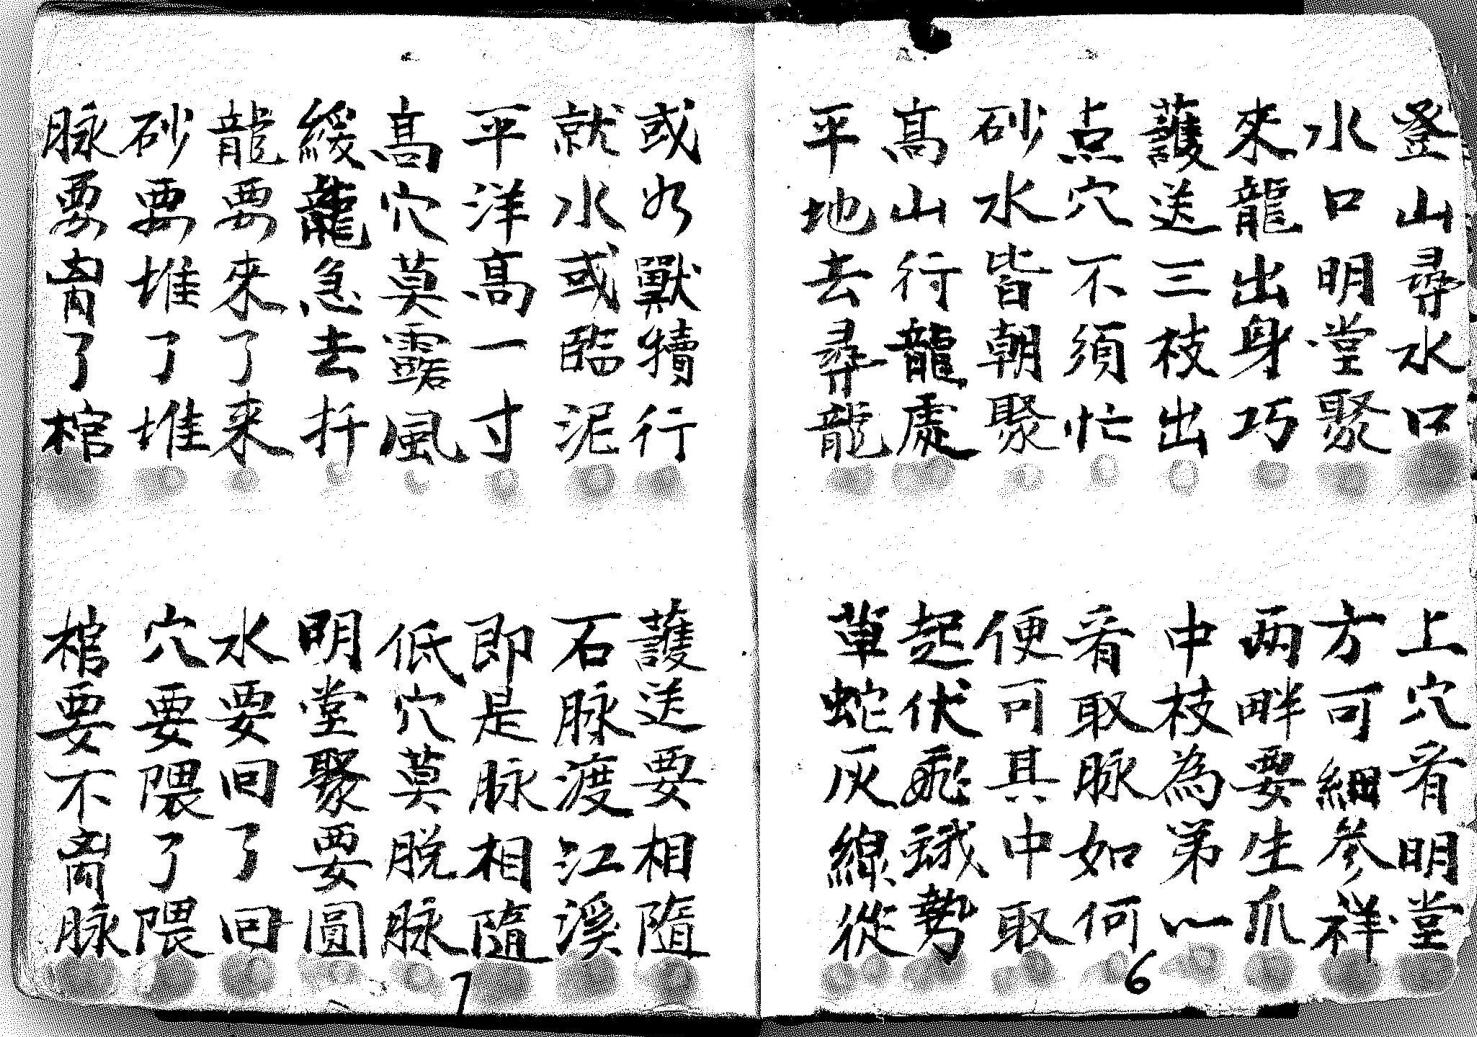 登山尋水口
上穴看明堂
水口明堂聚
方可細參祥
來龍出身巧
两畔要生爪
護送三枝出
中枝為第一
点穴不須忙
看取脉如何
砂水皆朝聚
便可其中取
髙山行龍處
起伏飛蛾勢
平地去尋龍
草蛇灰線從
6
或如獸犢行
護送要相隨
就水或臨泥
石脉渡江溪
平洋髙一寸
即是脉相隨
髙穴莫露風
低穴莫脱脉
緩龍急去扦
明堂聚要圓
龍要來了来
水要回了回
砂要堆了堆
穴要隈了隈
脉要了棺
棺要不脉
7